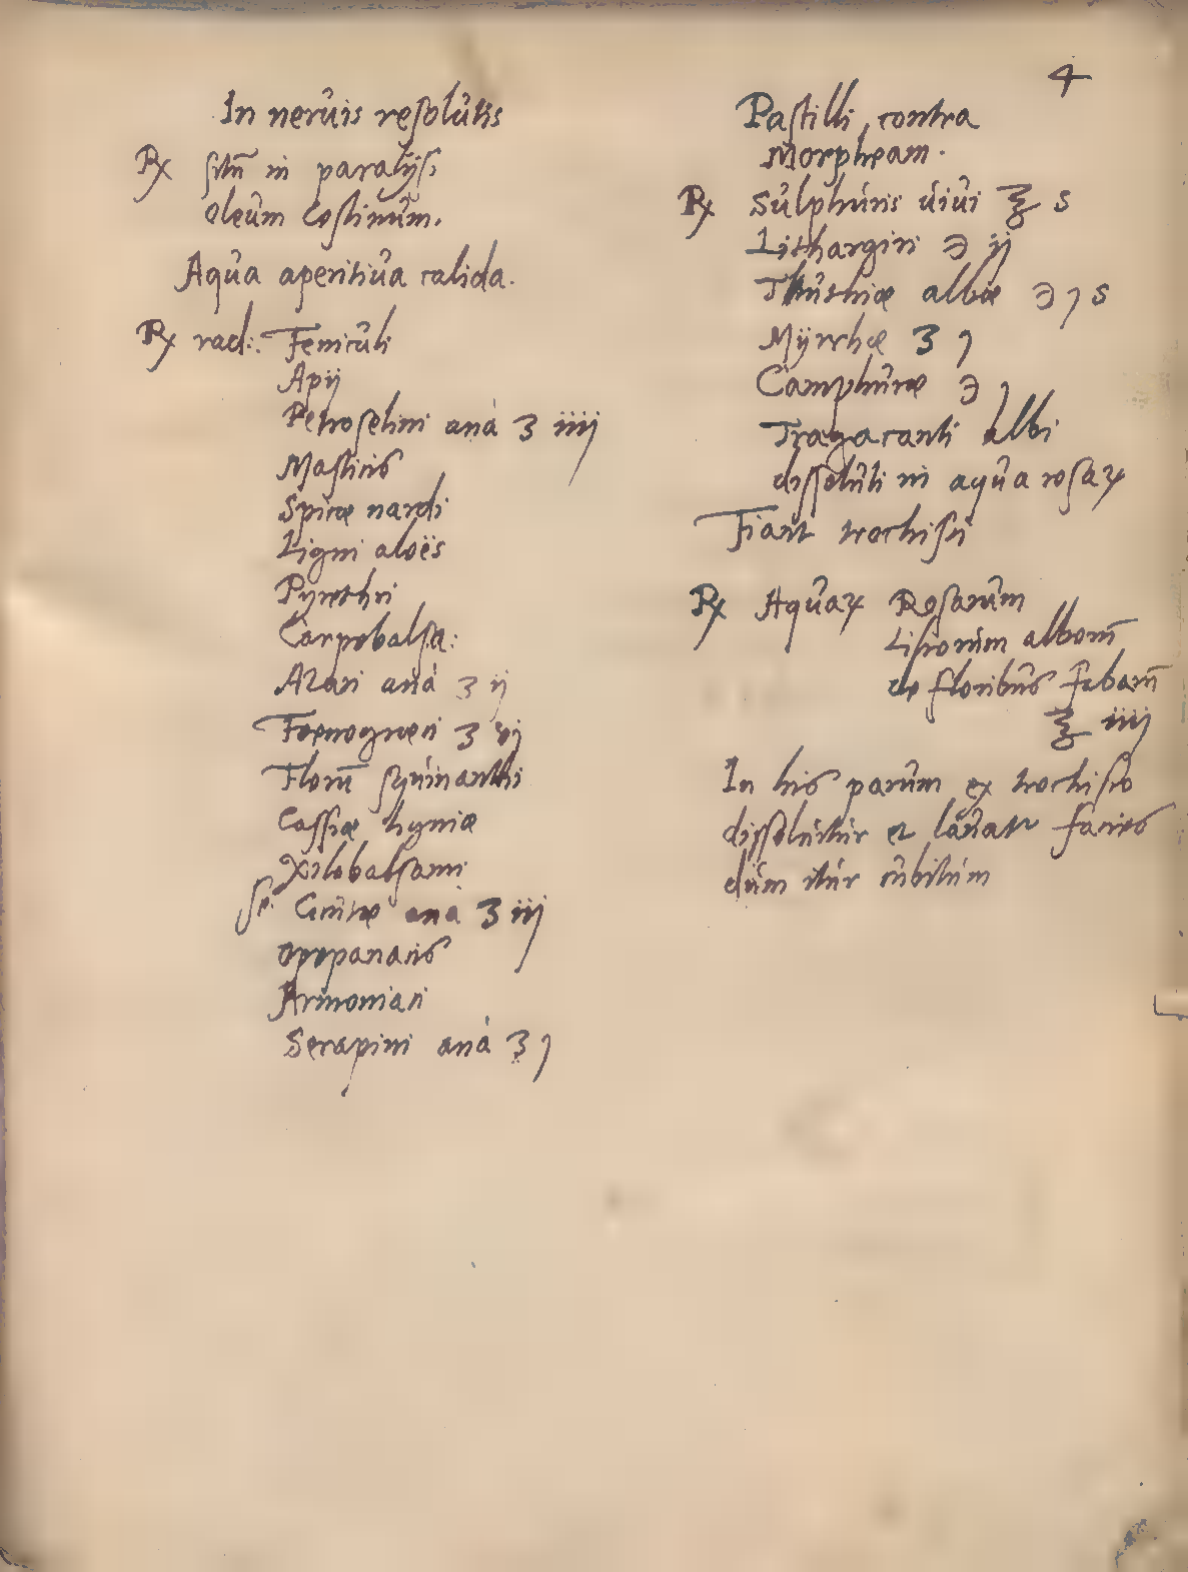 4
In neruis resolutis
℞ in paralysi
Oleum Costinum.
Aqua aperitiua calida.
℞ rad: Feniculi
Apij
Petroselini aná ʒ iiij
Masticis
Spicæ nardi
Ligni aloës
Pyrethri
Carpobalsa:
Azari aná ʒ ij
Foenogræci ʒ vj
Florū squinanthi
Cassiæ lygniæ
Xilobalsami
Cicutæ aná ʒ iij
Opopanacis
Armoniaci
Serapini aná ʒ j
Pastilli contra
Morpheam.
℞ Sulphuris uiui ℥ s
Lithargiri ℈ ij
Thuthiæ albæ ℈ j s
Myrrhæ ʒ j
Camphuræ ℈ j
Tragacanti albi
dissoluti in aqua rosaꝝ
Fiant trochisci
℞ Aquaꝝ Rosarum
Liliorum alborū
de floribus fabarū
℥ iiij
In his parum ex trochisco
dissoluitur et lauatr facies
dum itur cubitum